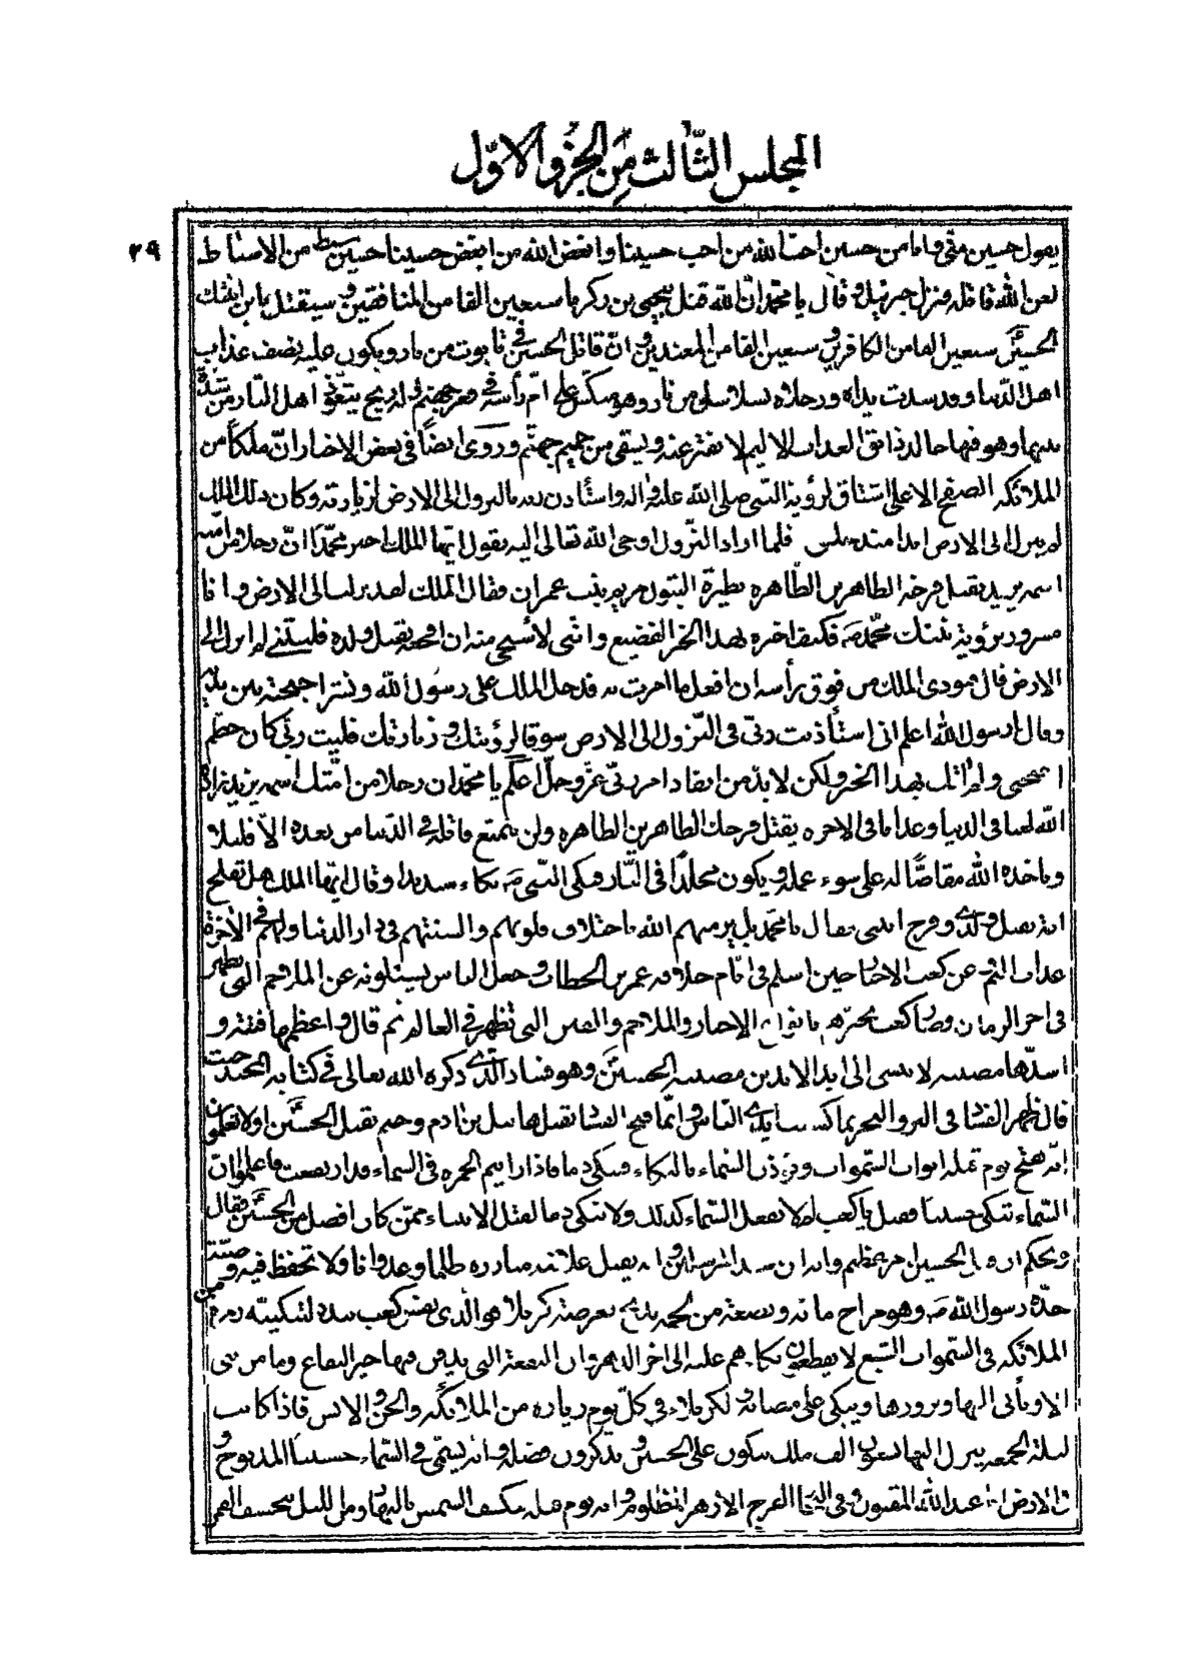 المجلس الثالث من الجزء الاول
٢٩
يقول حسين منى وانا من حسين احب الله من احب حسينا وابغض الله من ابغض حسينا حسين سبط من الاسباط
لعن الله قاتله فنزل جبرئيل وقال يا محمد ان الله قتل بيحيى بن زكريا سبعين الفا من المنافقين وسيقتل بابن ابنتك
الحسين سبعين الفا من الكافرين وسبعين الفا من المعتدين وان قاتل الحسين في تابوت من نار ويكون عليه نصف عذاب
اهل الدنيا وقد شدت يداه ورجلاه بسلاسل من نار وهو منكس على ام رأسه في قعر جهنم وله ريح يتعوذ اهل النار من شدة
نتنها وهو فيها خالد ذائق العذاب الاليم لا يفتر عنه ويسقى من حميم جهنم وروى ايضا في بعض الاخبار ان ملكا من
الملائكة الصفح الاعلى اشتاق لرؤية النبي صلى الله عليه واله واستأذن ربه بالنزول الى الارض لزيارته وكان ذلك الملك
لم ينزل الى الارض ابدا منذ خلقت فلما اراد النزول اوحى الله تعالى اليه يقول ايها الملك اخبر محمدا ان رجلا من امته
اسمه يزيد يقتل فرخه الطاهر بن الطاهرة نظيرة البتول مريم بنت عمران فقال الملك لقد نزلت الى الارض وانا
مسرور برؤية نبيك محمد ص فكيف اخبره بهذا الخبر الفضيع وانني لأستحيي منه ان افجعه بقتل ولده فليتني لم انزل الى
الارض قال فنودى الملك من فوق رأسه ان افعل ما امرت به فدخل الملك على رسول الله ونشر اجنحته بين يديه
وقال يا رسول الله اعلم انى استأذنت ربي في النزول الى الارض شوقا لرؤيتك وزيارتك فليت ربي كان حطم
اجنحتى ولم اتك بهذا الخبر ولكن لا بد من انفاذ امر ربي عز وجل اعلم يا محمد ان رجلا من امتك اسمه يزيد زاده
الله لعنا في الدنيا وعذابا في الاخرة يقتل فرخك الطاهر بن الطاهرة ولن يتمتع قاتله في الدنيا من بعده الا قليلا
وياخذه الله مقاصا له على سوء عمله ويكون مخلدا في النار فبكى النبي ص بكاء شديدا وقال ايها الملك هل تفلح
امة تقتل ولدى وفرخ ابنتى فقال يا محمد بل يرميهم الله باختلاف قلوبهم والسنتهم في دار الدنيا ولهم في الآخرة
عذاب اليم عن كعب الاحبار حين اسلم في ايام خلافة عمر بن الخطاب وجعل الناس يسئلونه عن الملاحم التي تظهر
في اخر الزمان وصار كعب يخبرهم بانواع الاخبار والملاحم والفتن التي تظهر في العالم ثم قال واعظمها فتنة و
اشدها مصيبة لا تنسى الى ابد الابدين مصيبة الحسين وهو فساد الذي ذكره الله تعالى في كتابه المجيد حيث
قال ظهر الفساد في البر والبحر بما كسبت ايدي الناس وانما فتح الفساد بقتل هابيل بن ادم وختم بقتل الحسين اولا تعلمون
انه يفتح يوم قتله ابواب السموات ويؤذن السماء بالبكاء فتبكى دما فاذا رايتم الحمرة في السماء قد ارتفعت فاعلموا ان
السماء تبكى حسينا فقيل يا كعب لم لا تفعل السماء كذلك ولا تبكى دما لقتل الانبياء ممن كان افضل من الحسين فقال
ويحكم ان قتل الحسين امر عظيم وانه ابن سيد المرسلين وانه يقتل علانية مبارزة ظلما وعدوانا ولا تحفظ فيه وصية
جده رسول الله ص وهو مزاج مائه وبضعة من لحمه يذبح بعرصة كربلا فوالذى نفس كعب بيده لتبكيه زمرة من
الملائكة في السموات السبع لا يقطعون بكاءهم عليه الى اخر الدهر وان البقعة التي يدفن فيها خير البقاع وما من نبى
الا وياتى اليها ويزورها ويبكى على مصابه ولكربلاء في كل يوم زيارة من الملائكة والجن والانس فاذا كانت
ليلة الجمعة ينزل اليها تسعون الف ملك يبكون على الحسين ويذكرون فضله وانه يسمى في السماء حسينا المذبوح و
في الارض ابا عبد الله المقتول وفي البحار الفرخ الازهر المظلوم وانه يوم قتله تنكسف الشمس بالنهار ومن الليل ينخسف القمر